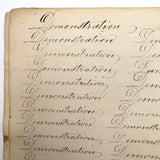 Demonstration
Demonstration
Demonstration
Demonstration
Demonstration
Demonstration
Demonstration
Demonstration
Demonstration
Demonstration